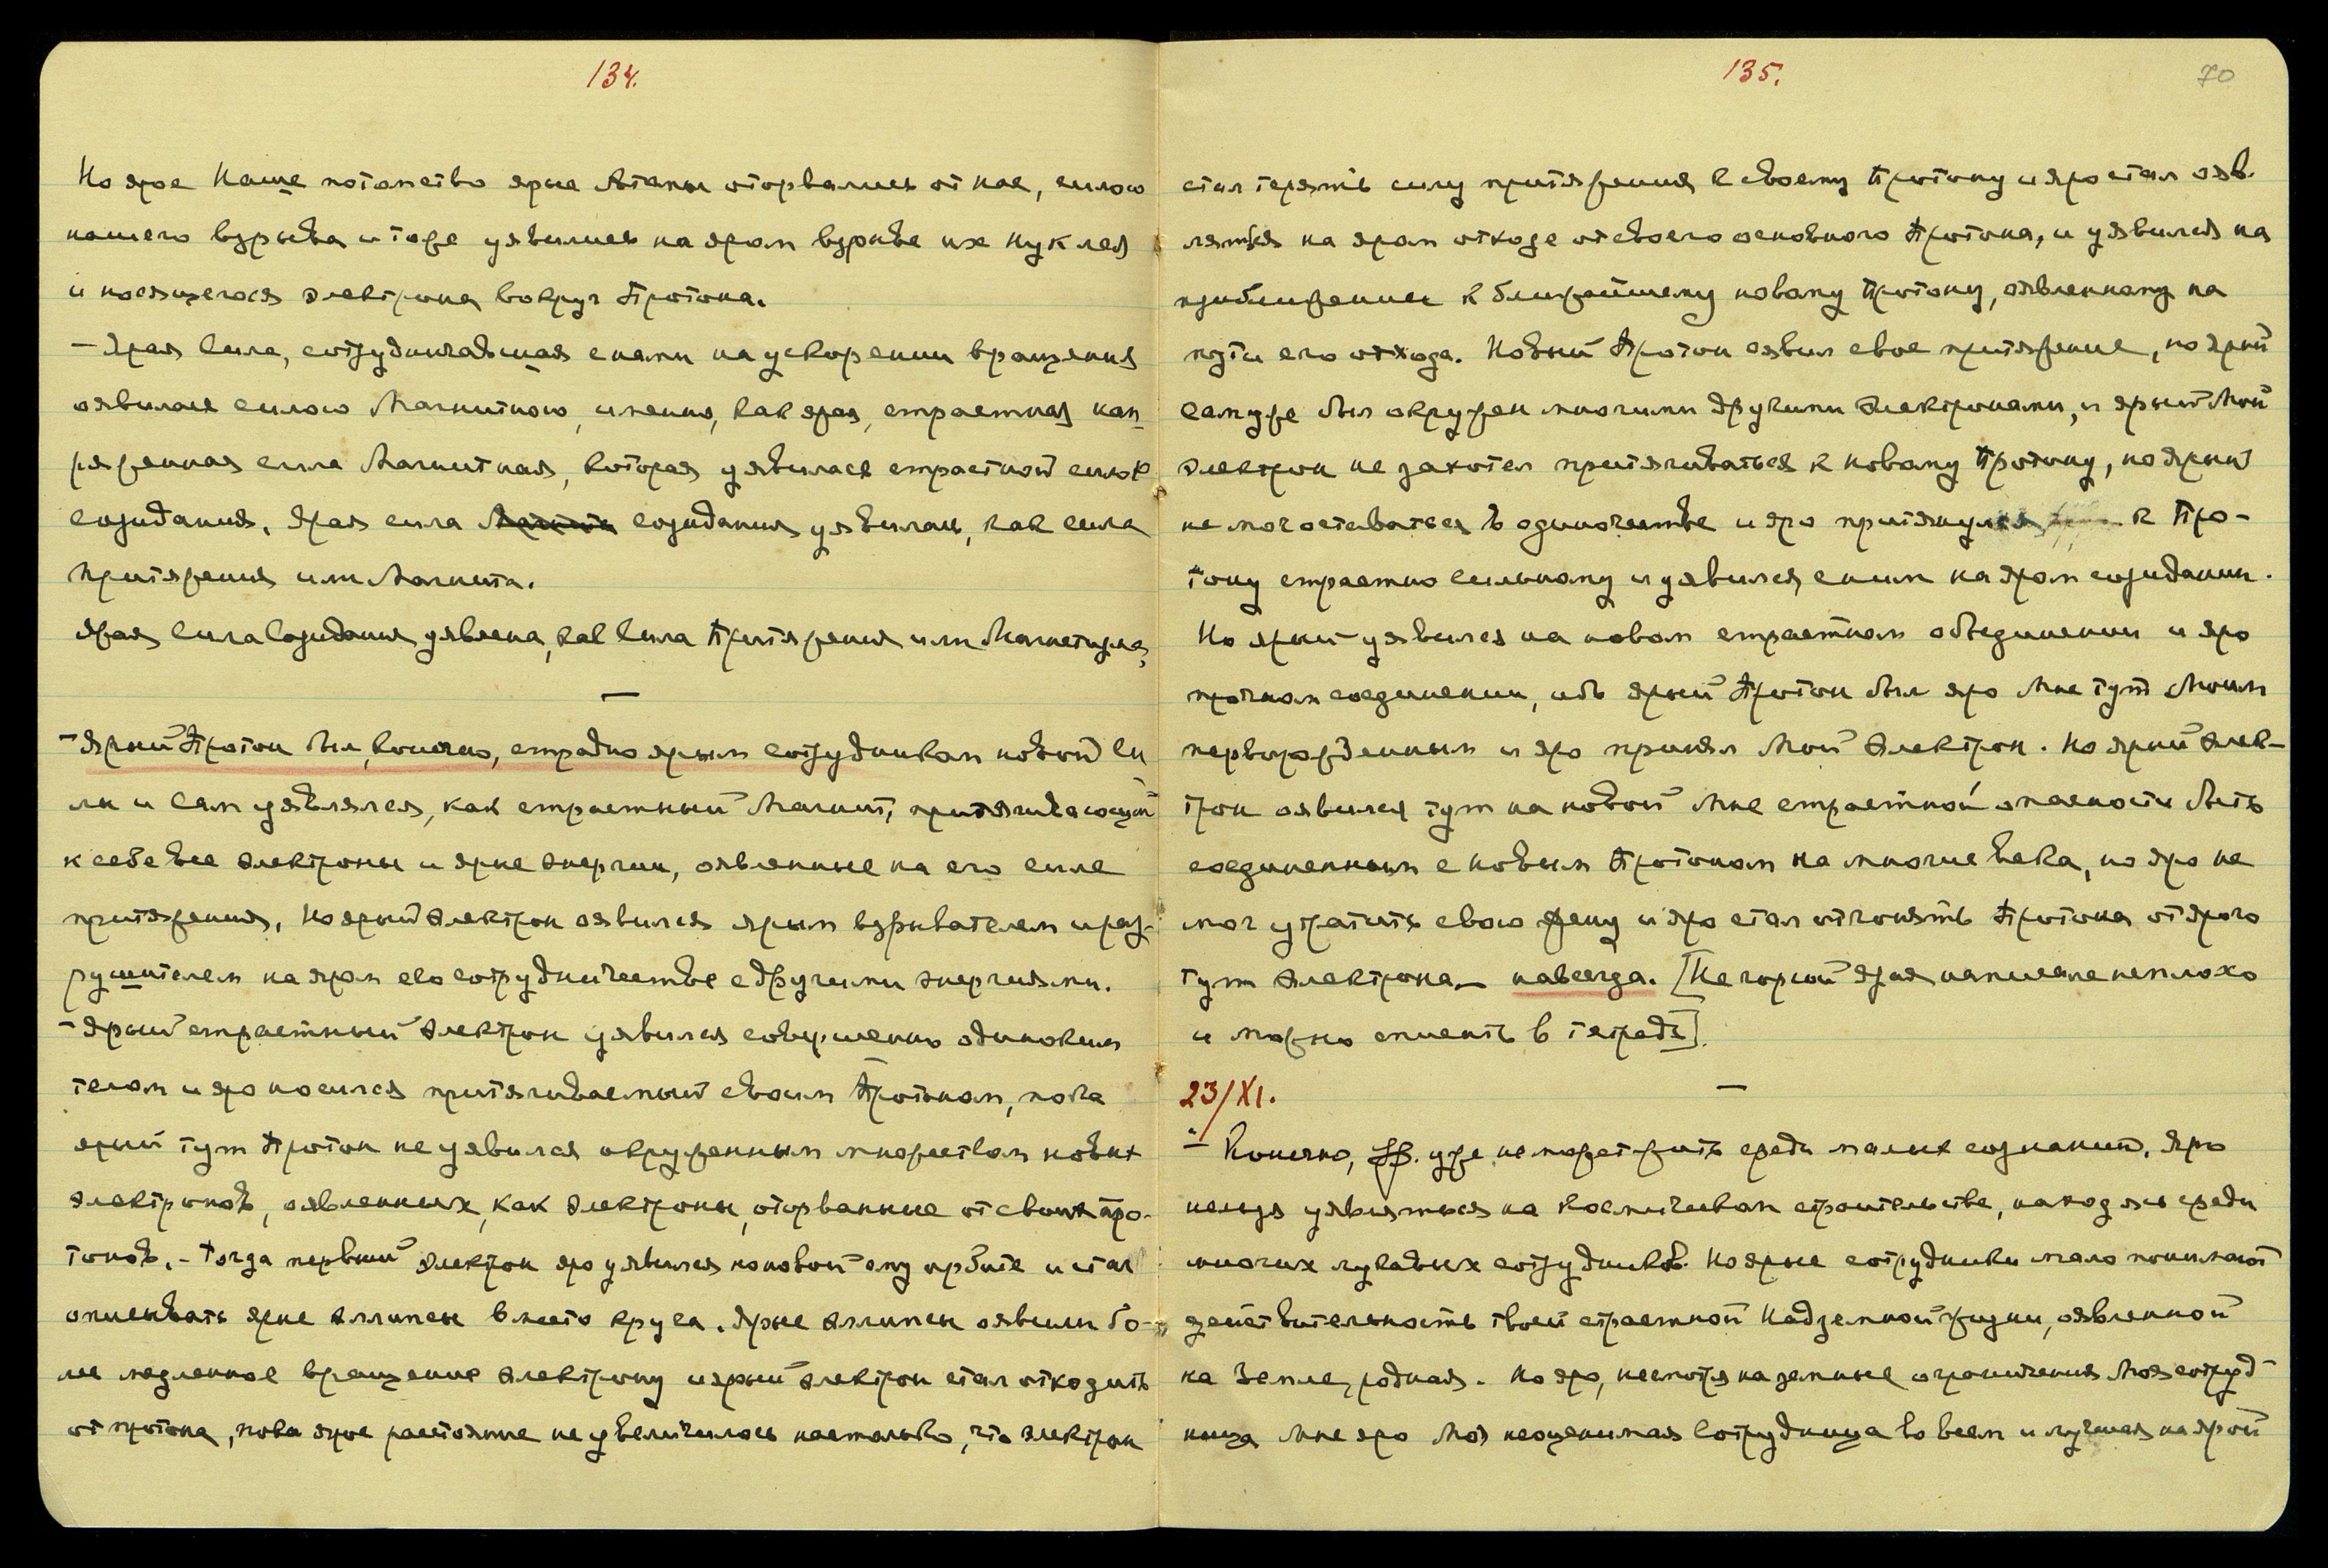 134.
Но ярое Наше потомство ярые Атомы оторвались от нас, силою
нашего взрыва и тоже уявились на яром взрыве их нуклея
и носящегося электрона вокруг Протона.
— Ярая Сила, сотрудничавшая с нами на ускорении вращения
оявилась силою Магнитною, именно, как ярая, страстная нап-
ряженная сила Магнитная, которая уявилась страстной силой
созидания. Ярая сила созидания уявилась, как сила
притяжения или Магнита.
Ярая Сила Созидания уявлена, как Сила Притяжения или Магнетизма.
—
— Ярый Протон был, конечно, страдно ярым сотрудником новой Си
лы и Сам уявлялся, как страстный Магнит, притягивающий
к себе все электроны и ярые энергии, оявленные на его силе
притяжения. Но ярый Электрон оявился ярым взрывателем и раз-
рушителем на яром его сотрудничестве с другими энергиями.
— Ярый страстный Электрон уявился совершенно одиноким
телом и яро носился притягиваемый своим Протоном, пока
ярый тут Протон не уявился окруженным множеством новых
электронов, оявленных, как Электроны, оторванные от своих про-
тонов. — Тогда первый Электрон яро уявился на новой ему орбите и стал
описывать ярые эллипсы вместо круга. Ярые Эллипсы оявили бо-
лее медленное вращение Электрону и ярый Электрон стал отходить
от протона, пока ярое расстояние не увеличилось настолько, что электрон
135.
70
стал терять силу притяжения к своему Протону и яро стал ояв-
ляться на яром отходе от своего основного Протона, и уявился на
приближении к ближайшему новому Протону, оявленному на
пути его отхода. Новый Протон оявил свое притяжение, но ярый
сам уже был окружен многими другими Электронами, и ярый Мой
Электрон не захотел притягиваться к новому Протону, но ярый
не мог оставаться в одиночестве и яро притянулся к Про-
тону страстно сильному и уявился с ним на яром созидании.
Но ярый уявился на новом страстном объединении и яро
прочном соединении, ибо ярый Протон был яро Мне тут Моим
перворожденным и яро принял Мой Электрон. Но ярый Элек-
трон оявился тут на новой Мне страстной опасности быть
соединенным с новым Протоном на многие века, но яро не
мог утратить свою Жену и яро стал отгонять Протона от ярого
тут Электрона — навсегда. [Не горюй ярая написано неплохо
и можно списать в тетрадь].
—
23/XI.
— Конечно, уже не может жить среди малых сознаний. Яро
нельзя уявиться на Космическом строительстве, находясь среди
многих лукавых сотрудников. Но ярые сотрудники мало понимают
действительность твоей страстной Надземной жизни, оявленной
на Земле, родная. Но яро, несмотря на земные ограничения Моя сотруд-
ница Мне яро Моя неоценимая Сотрудница во всем и лучшая на ярой